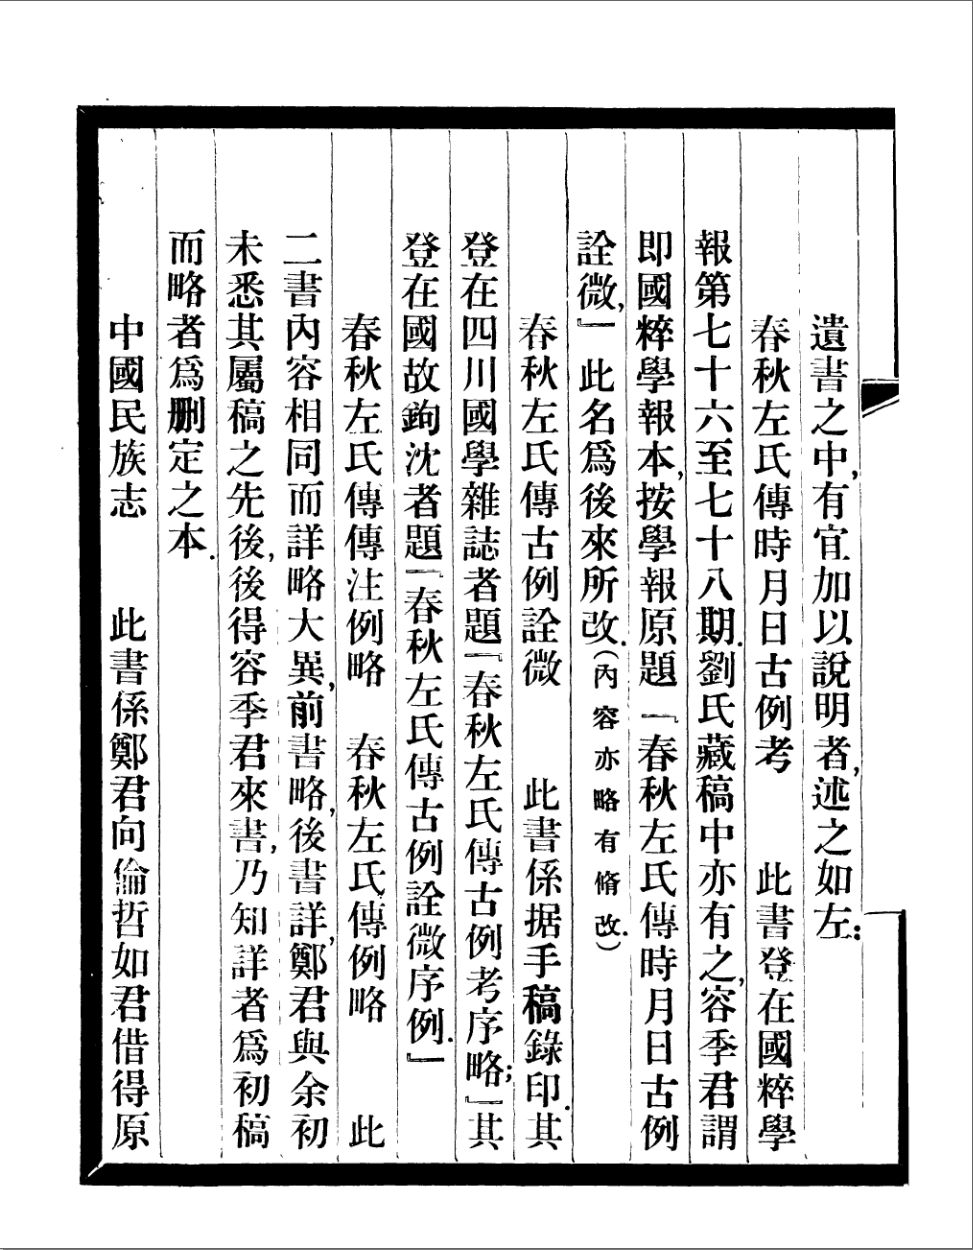 遺書之中，有宜加以說明者，述之如左：
春秋左氏傳時月日古例考　此書登在國粹學
報第七十六至七十八期．劉氏藏稿中亦有之，容季君謂
即國粹學報本，按學報原題『春秋左氏傳時月日古例
詮微，』此名爲後來所改．（內容亦略有脩改．）
春秋左氏傳古例詮微　此書係据手稿錄印．其
登在四川國學雜誌者題『春秋左氏傳古例考序略；』其
登在國故鉤沈者題『春秋左氏傳古例詮微序例．』
春秋左氏傳傳注例略　春秋左氏傳例略　此
二書內容相同而詳略大異，前書略，後書詳，鄭君與余初
未悉其屬稿之先後，後得容季君來書，乃知詳者爲初稿
而略者爲删定之本．
中國民族志　此書係鄭君向倫哲如君借得原